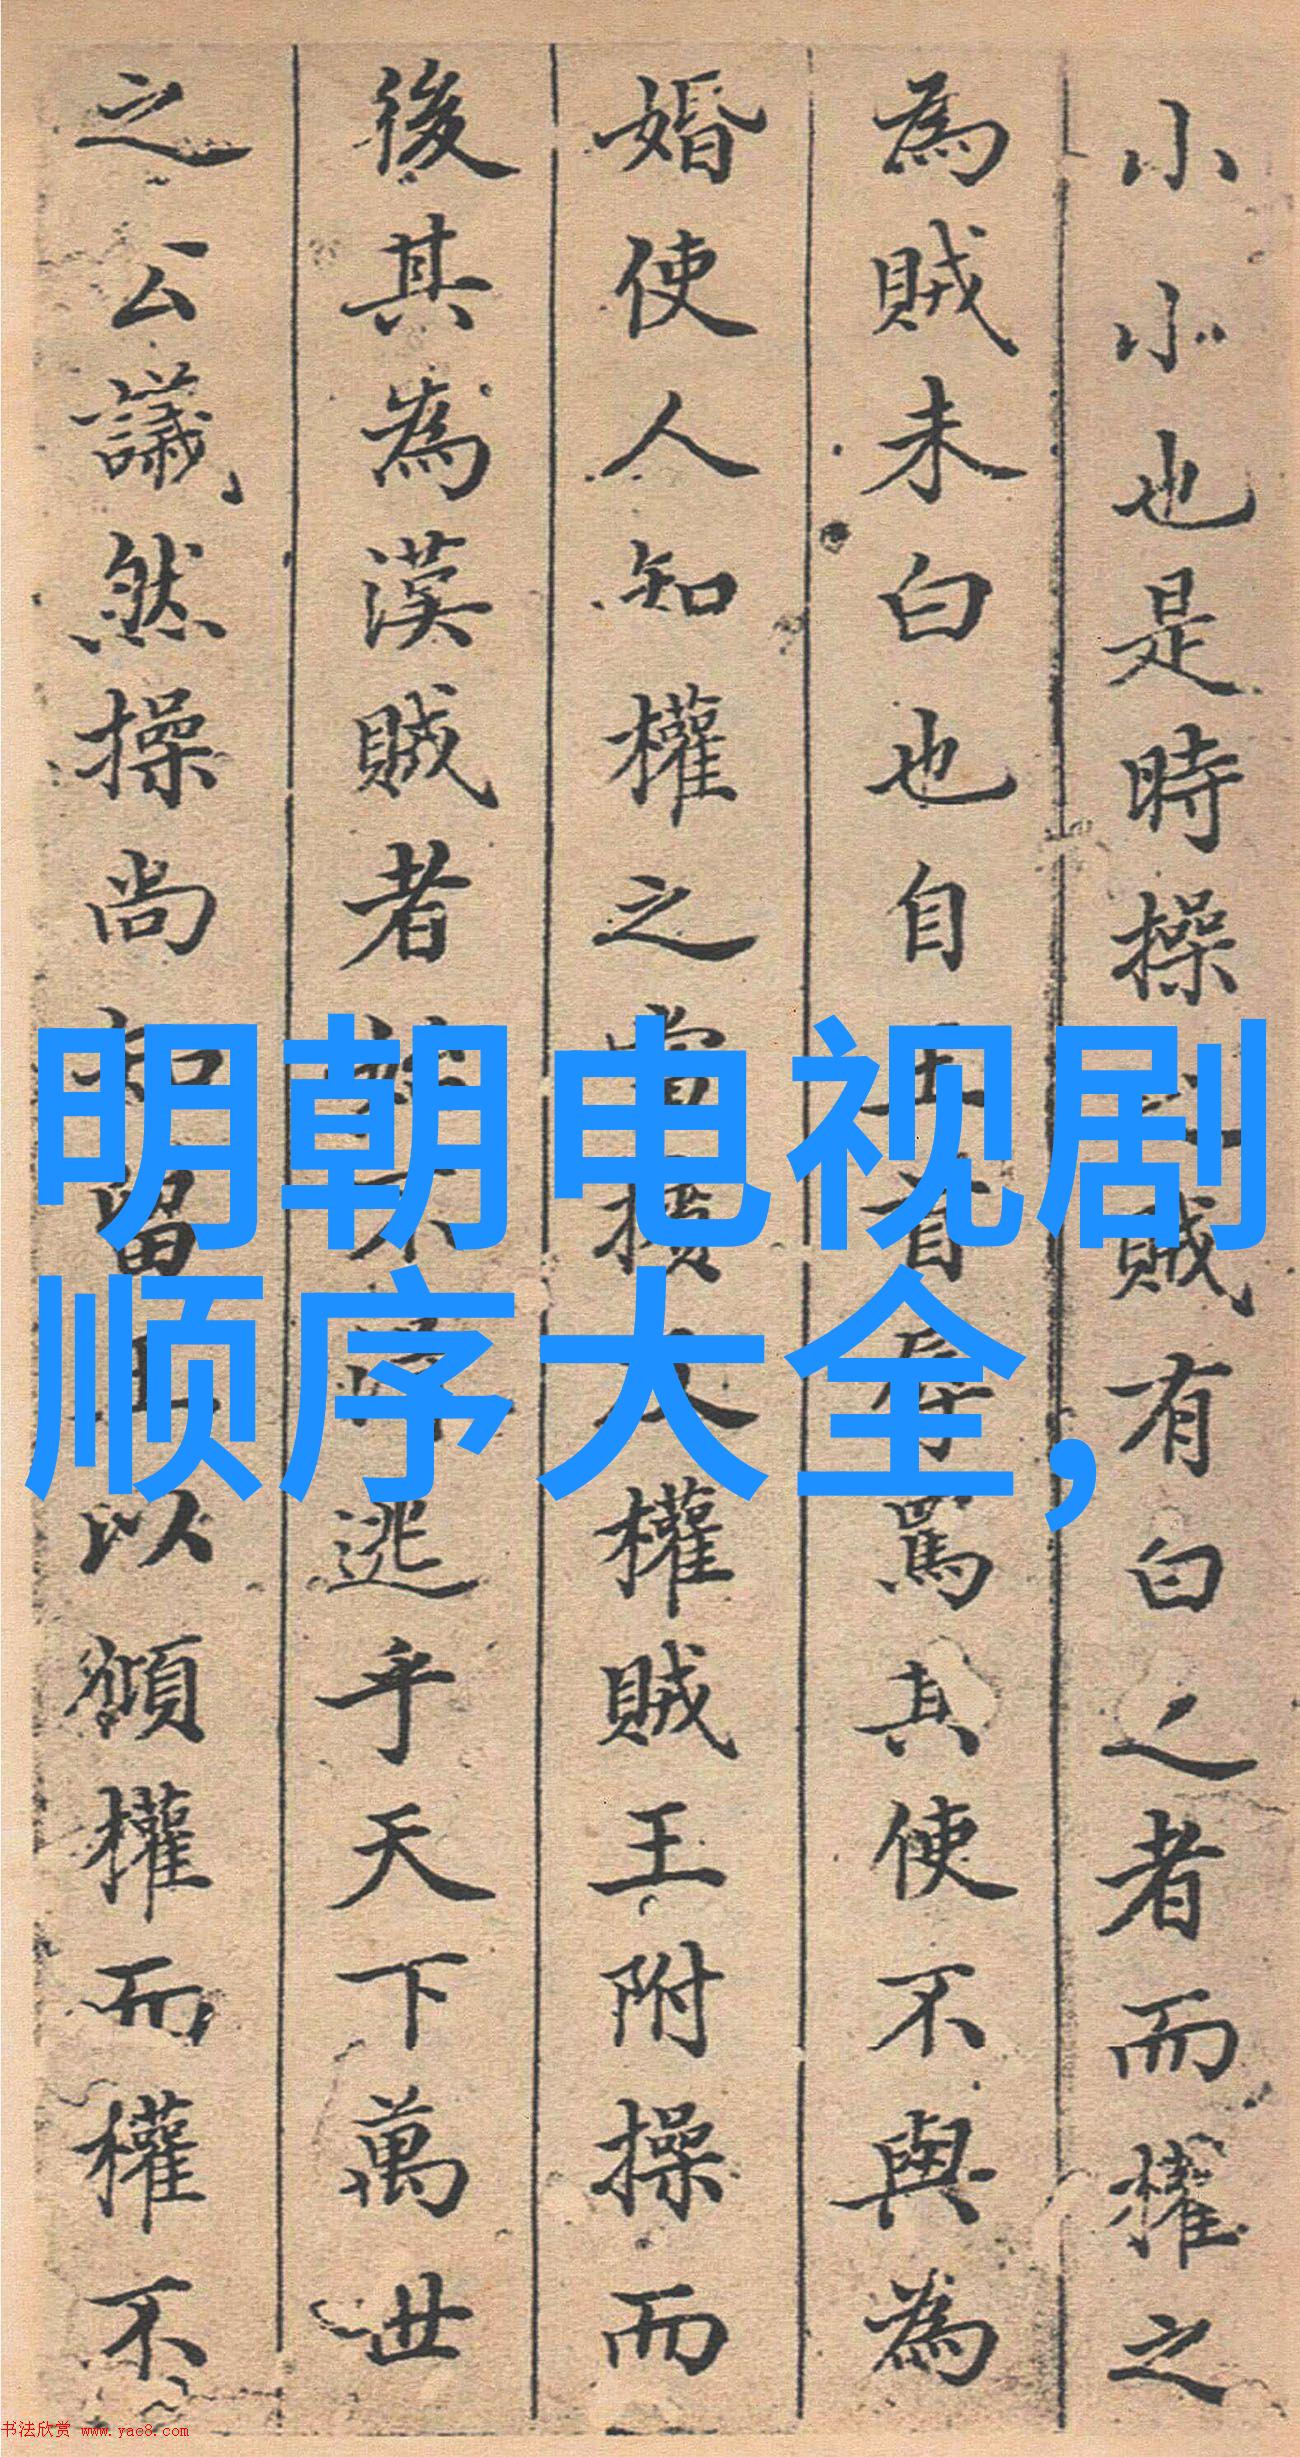 小小也是時操賊有白之者而權之
為賊未白也自罵其使不與為
婚使人知權之當權賊王附操而
後其為漢賊者不逃乎天下萬世
之公議然操尚知留且以權而權不
明朝电视剧
顺序大全,
书法欣赏 www.yac8.com